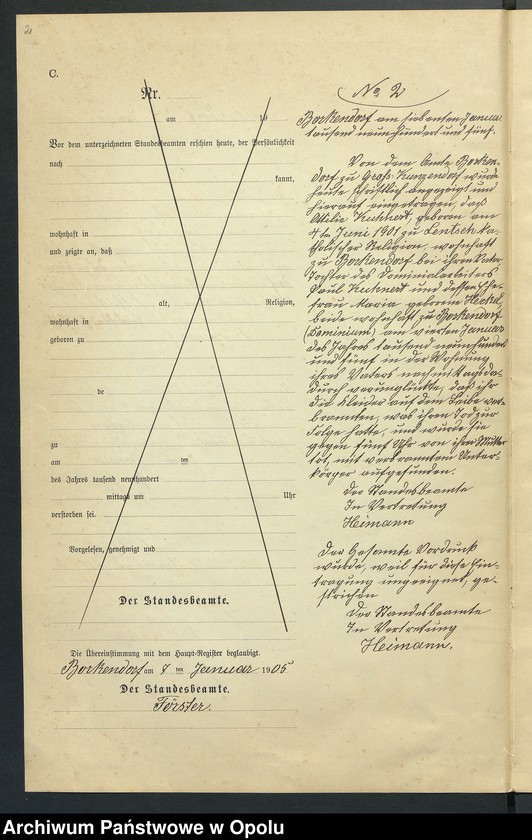 2
C.
Nr.
am 19
Vor dem unterzeichneten Standesbeamten erschien heute, der Persönlichkeit
nach
kannt,
wohnhaft in
und zeigte an, daß
alt, Religion,
wohnhaft in
geboren zu
de
zu
am ten
des Jahres tausend neunhundert
mittags um Uhr
verstorben sei.
Vorgelesen, genehmigt und
Der Standesbeamte.
Die Übereinstimmung mit dem Haupt-Register beglaubigt.
Borkendorf am 7 ten Januar 1905
Der Standesbeamte.
Förster.
No 2
Borkendorf am siebenten Januar
tausend neunhundert und fünf.
Von dem Amte Borken-
dorf zu Groß-Kunzendorf wurde
heute schriftlich angezeigt und
hierauf eingetragen, daß
Kuhnert, geboren am
4ten Juni 1901 zu Lentsch ka-
tholischer Religion, wohnhaft
zu Borkendorf bei ihrem Vater
Tochter des Dominialarbeiters
Paul Kuhnert und dessen Ehe-
frau Maria geborene Heckel
beide wohnhaft zu Borkendorf
(Dominium) am vierten Januar
des Jahres tausend neunhundert
und fünf in der Wohnung
ihres Vaters nachmittags da-
durch verunglückte, daß ihr
die Kleider auf dem Leibe ver-
brannten, was ihren Tod zur
Folge hatte, und wurde sie
gegen fünf Uhr von ihrer Mutter
tot, mit verbranntem Unter-
körper aufgefunden.
Der Standesbeamte
In Vertretung
Heimann
Der gesamte Vordruck
wurde, weil für diese Ein-
tragung ungeeignet, ge-
strichen
Der Standesbeamte
In Vertretung
Heimann.
Archiwum Państwowe w Opolu